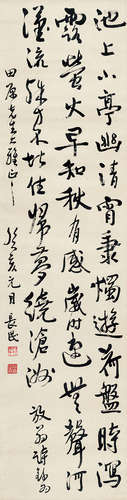 池上小亭幽清宵秉燭遊荷盤時瀉
露螢火早知秋有感歲時速無聲河
漢流殊方不堪住歸夢繞滄洲 放翁詩
田原先生大雅正之
癸亥元月 長民